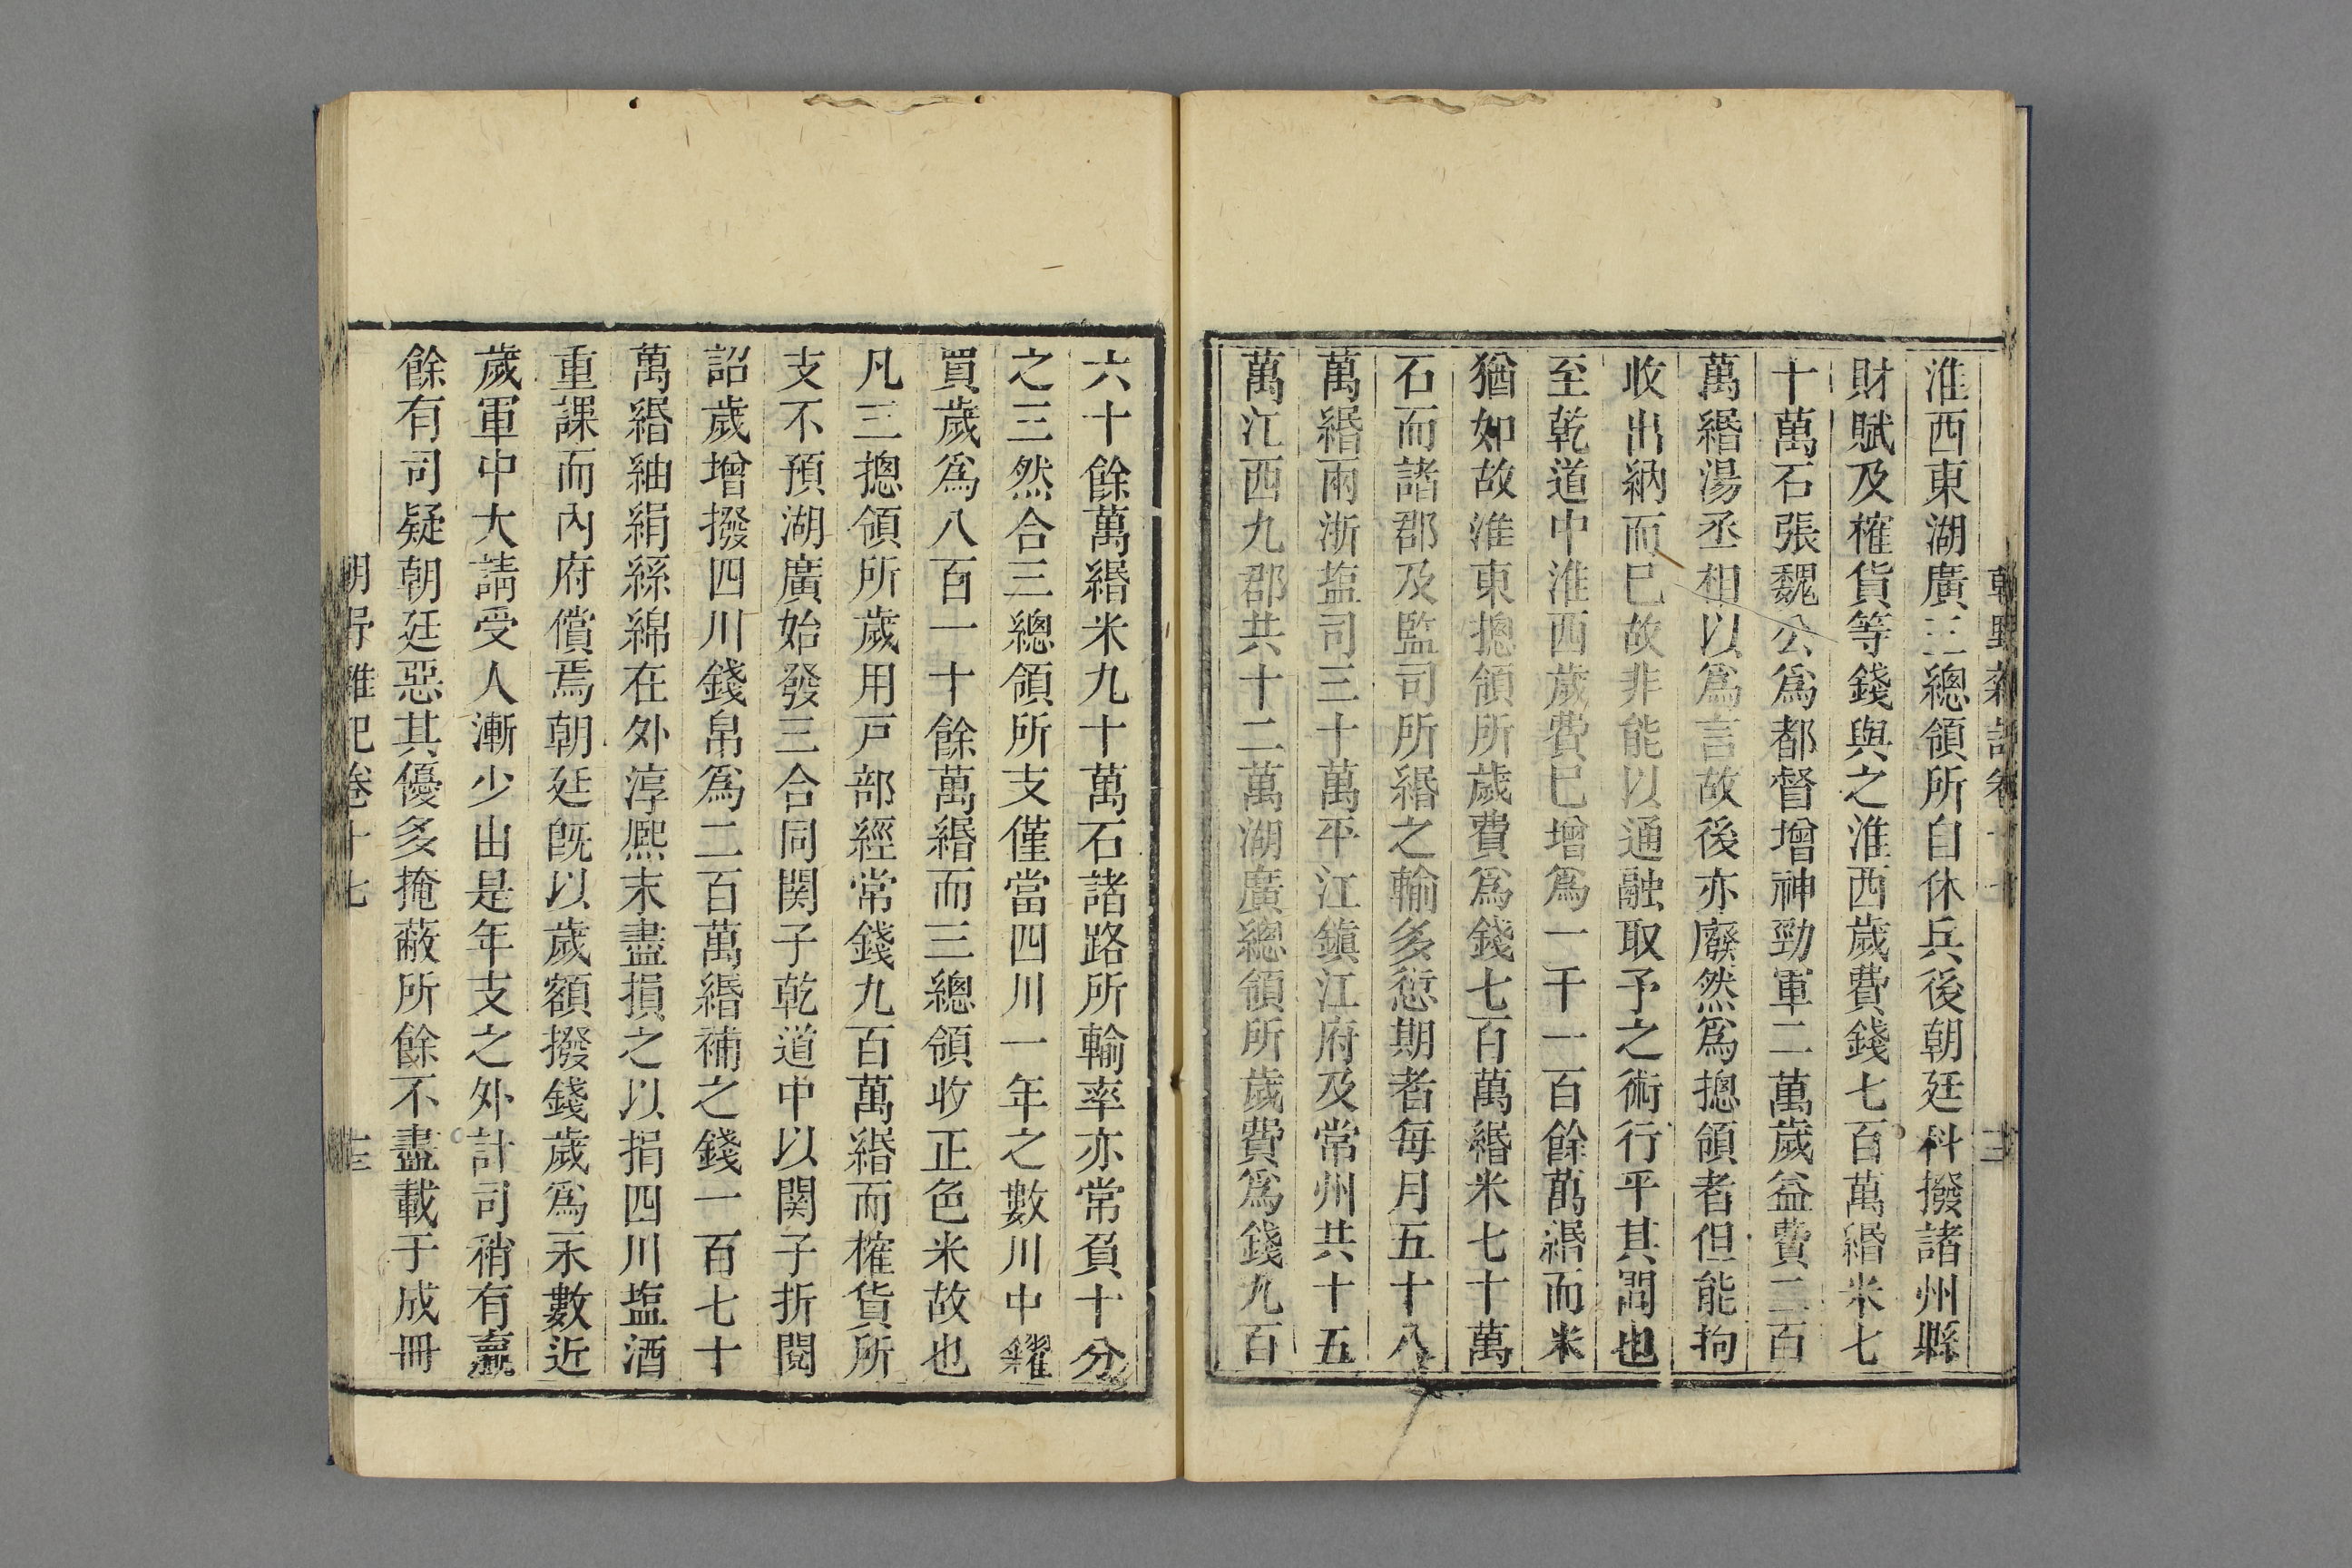 淮西東湖廣三總領所自休兵後朝廷科撥諸州縣
財賦及榷貨等錢與之淮西歲費錢七百萬緡米七
十萬石張魏公爲都督增神勁軍二萬歲益費二百
萬緡湯丞相以爲言故後亦廢然爲摠領者但能拘
收出納而已故非能以通融取予之術行平其間也
至乾道中淮西歲費已增爲一千一百餘萬緡而米
猶如故淮東摠領所歲費爲錢七百萬緡米七十萬
石而諸郡及監司所緡之輸多愆期者每月五十八
萬緡兩浙塩司三十萬平江鎮江府及常州共十五
萬江西九郡共十二萬湖廣總領所歲費爲錢九百
六十餘萬緡米九十萬石諸路所輸率亦常負十分
之三然合三總領所支僅當四川一年之數川中糴
買歲爲八百一十餘萬緡而三總領收正色米故也
凡三摠領所歲用戸部經常錢九百萬緡而榷貨所
支不預湖廣始發三合同関子乾道中以関子折閱
詔歲增撥四川錢帛爲二百萬緡補之錢一百七十
萬緡紬絹絲綿在外淳熈末盡損之以捐四川塩酒
重課而內府償焉朝廷旣以歲額撥錢歲爲永數近
歲軍中大請受人漸少出是年支之外計司稍有羸
餘有司疑朝廷惡其優多掩蔽所餘不盡載于成冊
朝野雜記卷十七